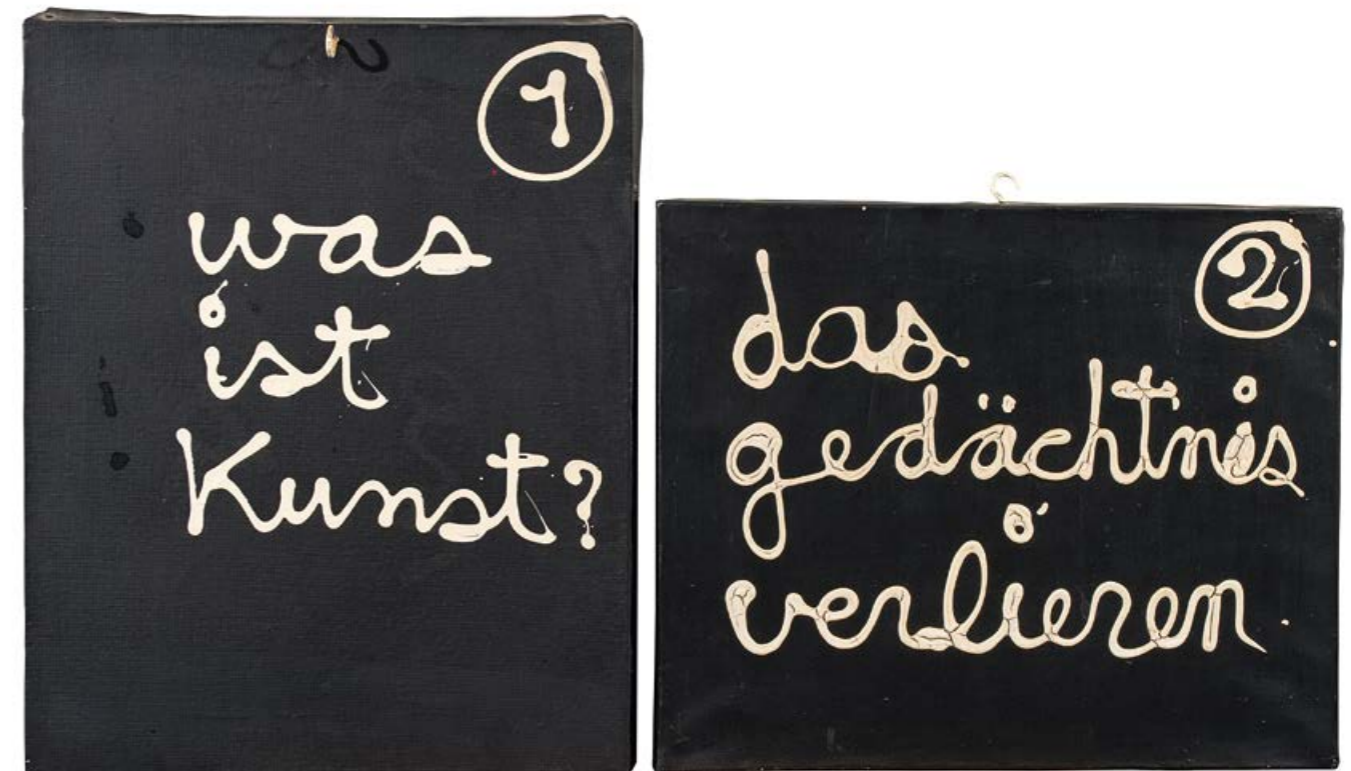 1
was
ist
Kunst?
2
das
gedächtnis
verlieren.